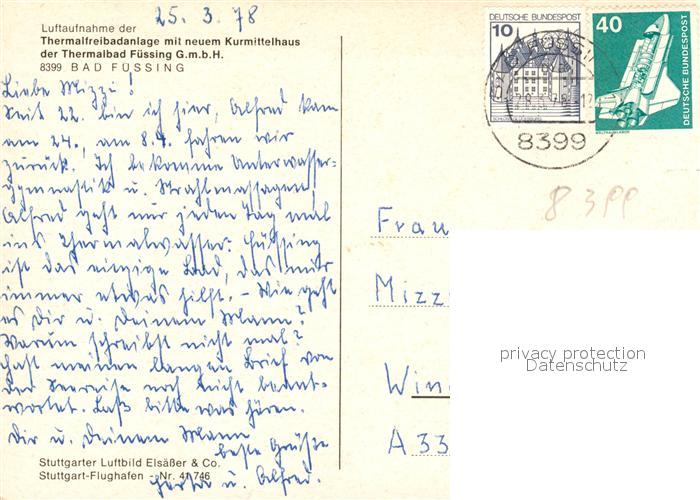 25. 3. 78
Luftaufnahme der
Thermalfreibadanlage mit neuem Kurmittelhaus
der Thermalbad Füssing G.m.b.H.
8399 BAD FÜSSING
DEUTSCHE BUNDESPOST
10
40
DEUTSCHE BUNDESPOST
8399
8399
Liebe Mizzi!
Seit 22. bin ich hier, Alfred kam
am 24., am 8.4. fahren wir
zurück. Ich bekomme Unterwasser-
gymnastik u. Strahlmassagen,
Alfred geht nur jeden Tag mal
ins Thermalwasser. Füssing
ist das einzige Bad, das mir
immer etwas hilft. – Wie geht
es Dir u. Deinem Mann?
Warum schreibst nicht mal?
Hast meinen langen Brief von
der Seereise noch nicht beant-
wortet. Laß bitte was hören.
Dir u. Deinem Mann
beste Grüße
u. Alfred.
Frau
Mizz
Win
A 33
privacy protection
Datenschutz
Stuttgarter Luftbild Elsäßer & Co.
Stuttgart-Flughafen - Nr. 41 746